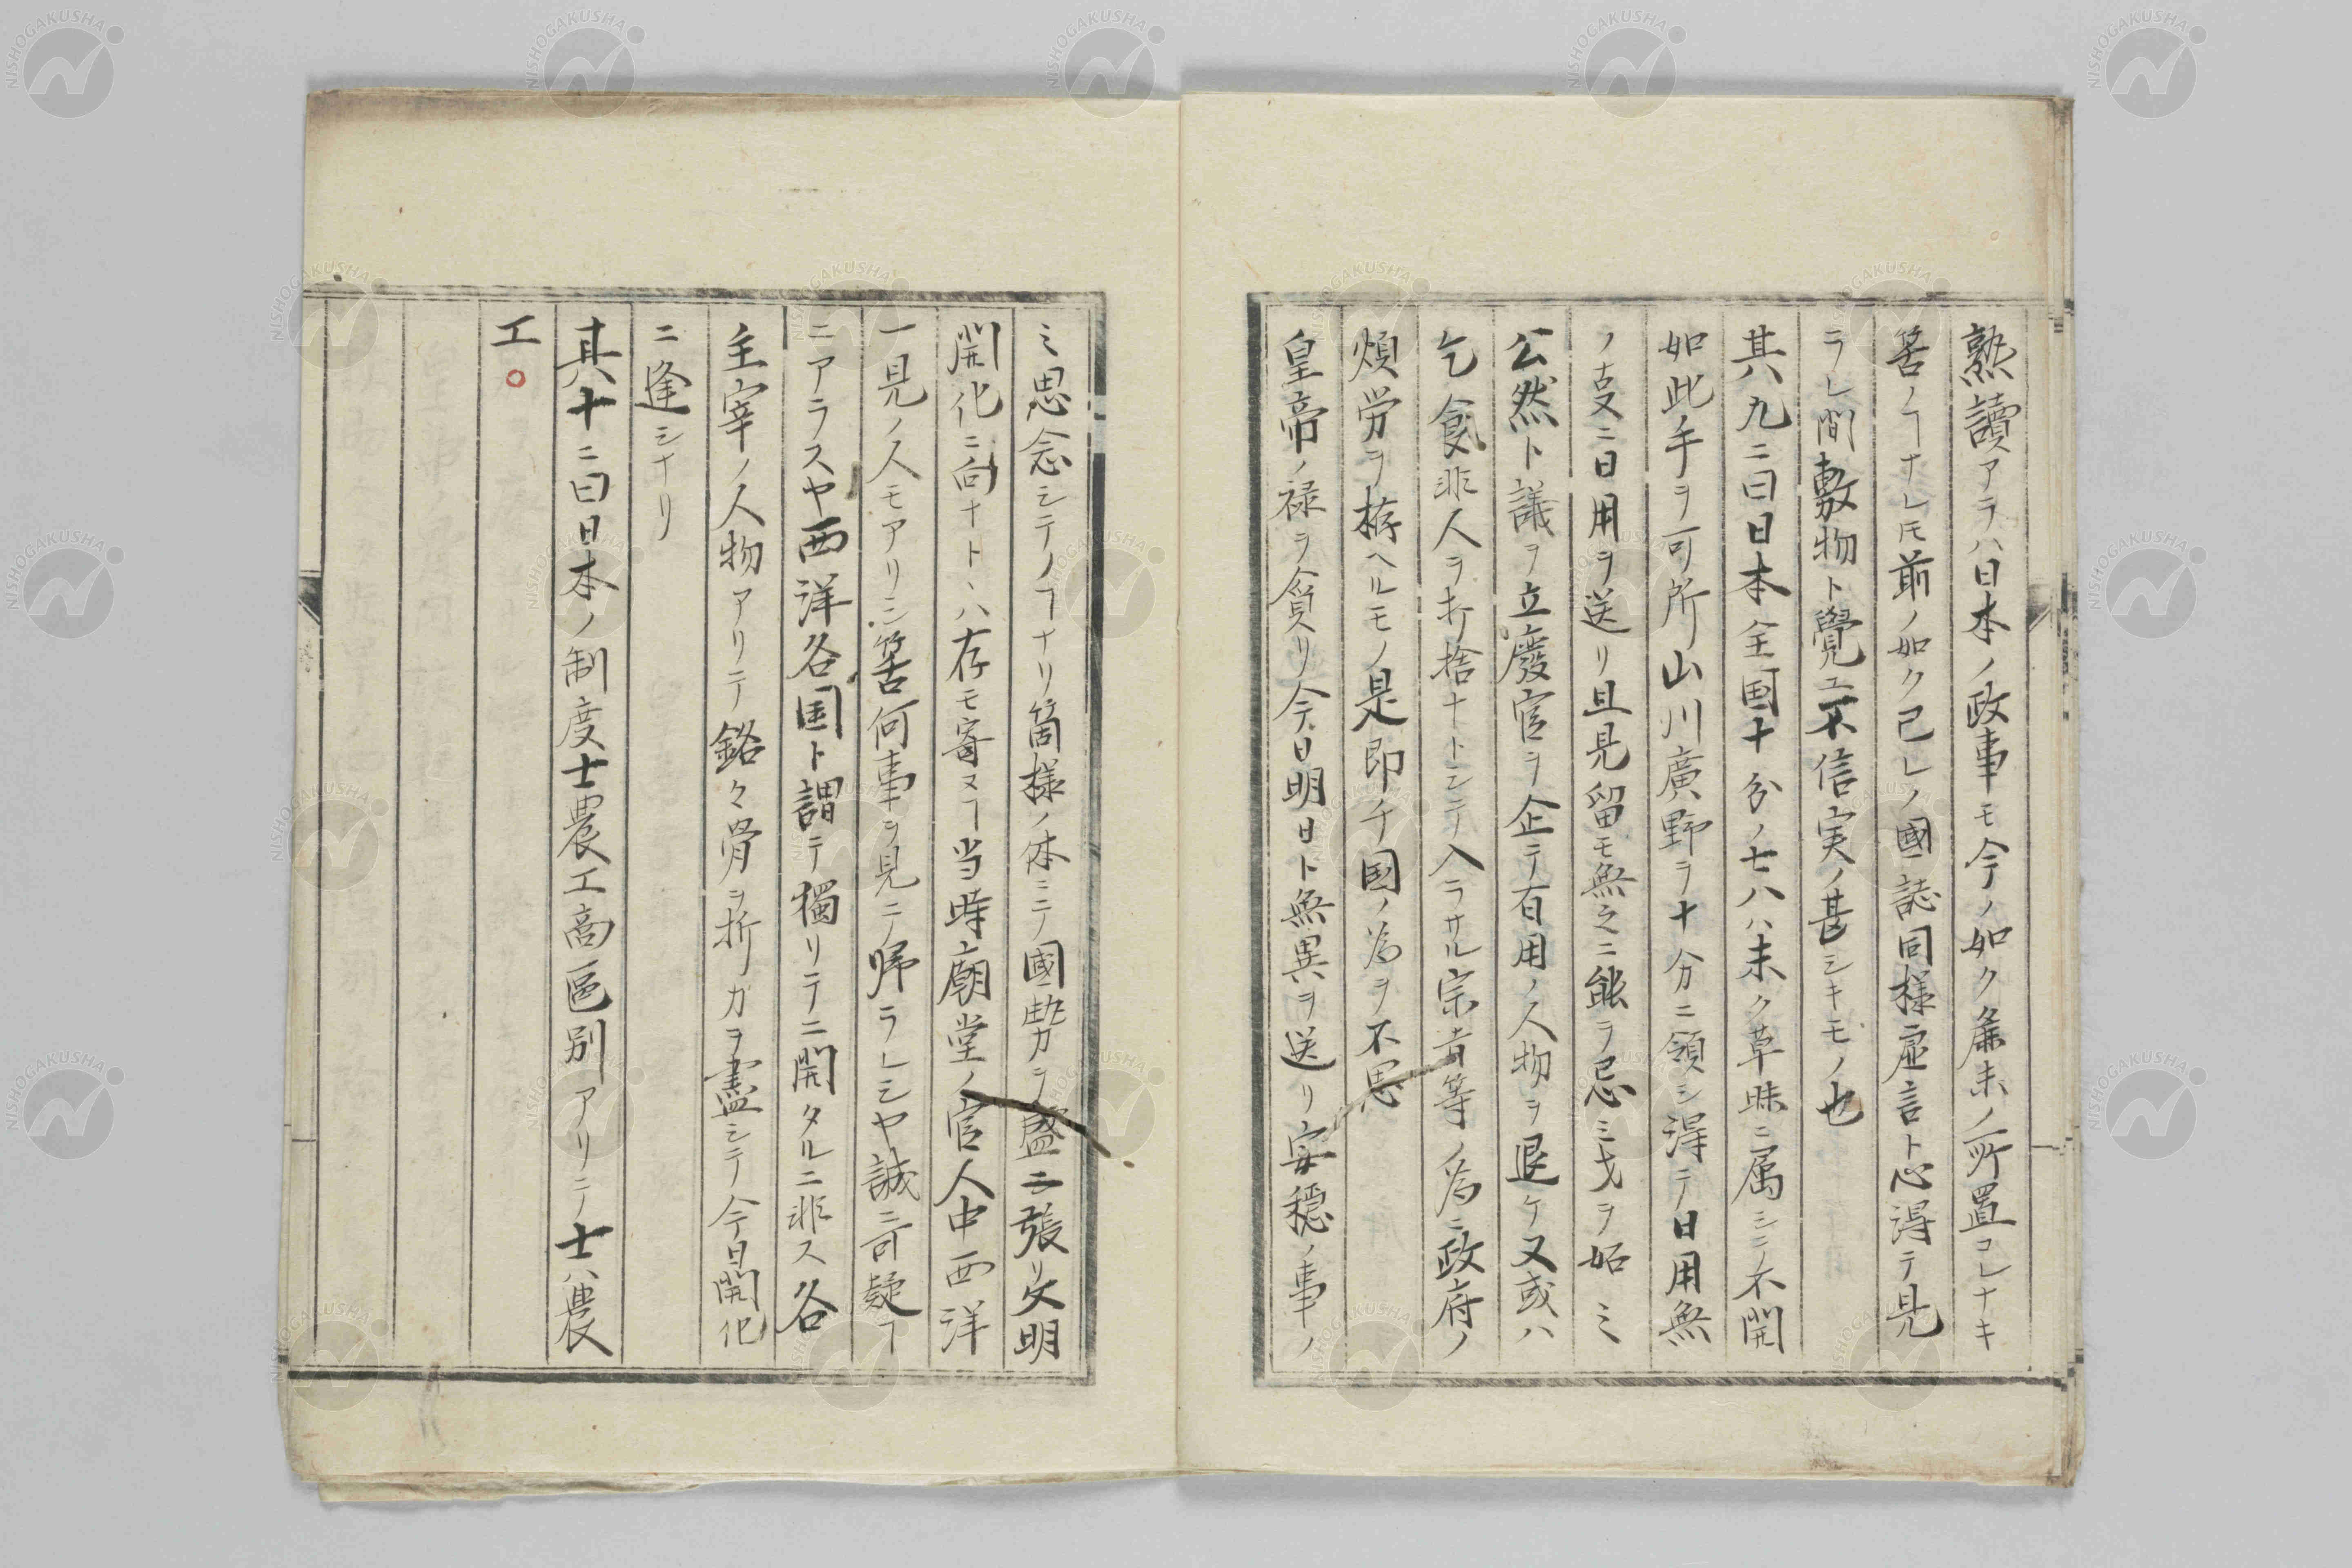 熟讀アラハ日本ノ政事モ今ノ如ク麁末ノ所置コレナキ
筈ノヿナレ𪜈前ノ如ク己レノ國誌同様虚言ト心得テ見
ラレ間敷物ト覺ユ不信実ノ甚シキモノ也
其九ニ曰日本全国十分ノ七八ハ未タ草昧ニ属シテ不開
如此手ヲ可所山川廣野ヲ十分ニ領シ得テ日用無
ノ支ニ日用ヲ送リ且見留モ無之ニ能ヲ忌ミ才ヲ妬ミ
公然ト議ヲ立廢官ヲ企テ有用ノ人物ヲ退ケ又或ハ
乞食非人ヲ打捨ナトシテ入ラサル宗旨等ノ為ニ政府ノ
煩労ヲ拵ヘルモノ是即チ国ノ為ヲ不思
皇帝ノ禄ヲ貪リ今日明日ト無異ヲ送リ安穏ノ事ノ
ミ思念シテノヿナリ箇様ノ体ニテ國勢ヲ盛ニ張リ文明
開化ニ向ナトヽハ存モ寄ヌヿ当時廟堂ノ官人中西洋
一見ノ人モアリシ筈何事ヲ見テ帰ラレシヤ誠ニ可疑ヿ
ニアラスヤ西洋各国ト謂テ獨リテニ開タルニ非ス各
主宰ノ人物アリテ銘々骨ヲ折力ヲ盡シテ今日開化
ニ逢シナリ
其十ニ曰日本ノ制度士農工商区別アリテ士ハ農
工
NISHOGAKUSHA